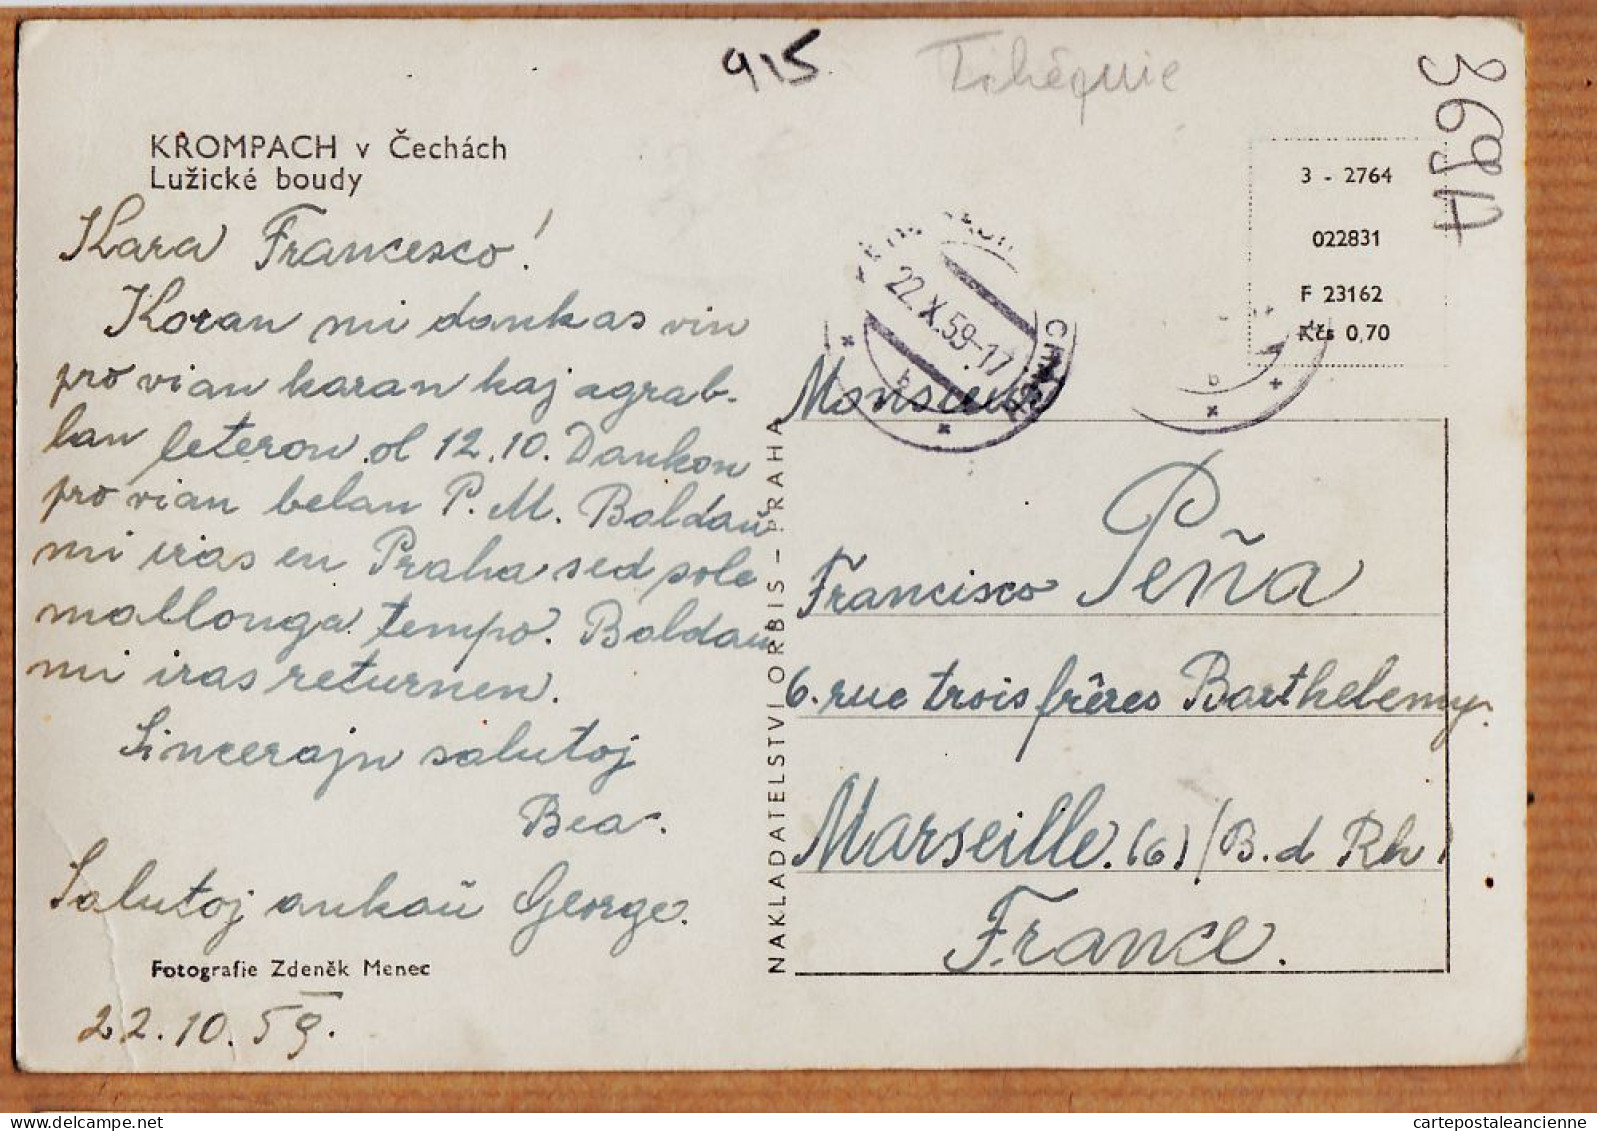 915
Tchéquie
369A
KROMPACH v Čechách
Lužické boudy
3 - 2764
022831
F 23162
Kčs 0,70
22.X.59-17
b
b
Kara Francesco!
Koran mi dankas vin
pro vian karan kaj agrab-
lan leteron ol 12.10. Dankon
pro vian belan P.M. Baldaŭ
mi iras en Praha sed sole
mallonga tempo. Baldaŭ
mi iras returnen.
Sincerajn salutoj
Bea.
Salutoj ankaŭ George.
Fotografie Zdeněk Menec
22.10.59.
NAKLADATELSTVI ORBIS - PRAHA
Monsieur
Francisco Peña
6. rue trois frêres Barthelemy.
Marseille. (6) (B. d Rh)
France.
cartepostaleancienne
delcampe.net